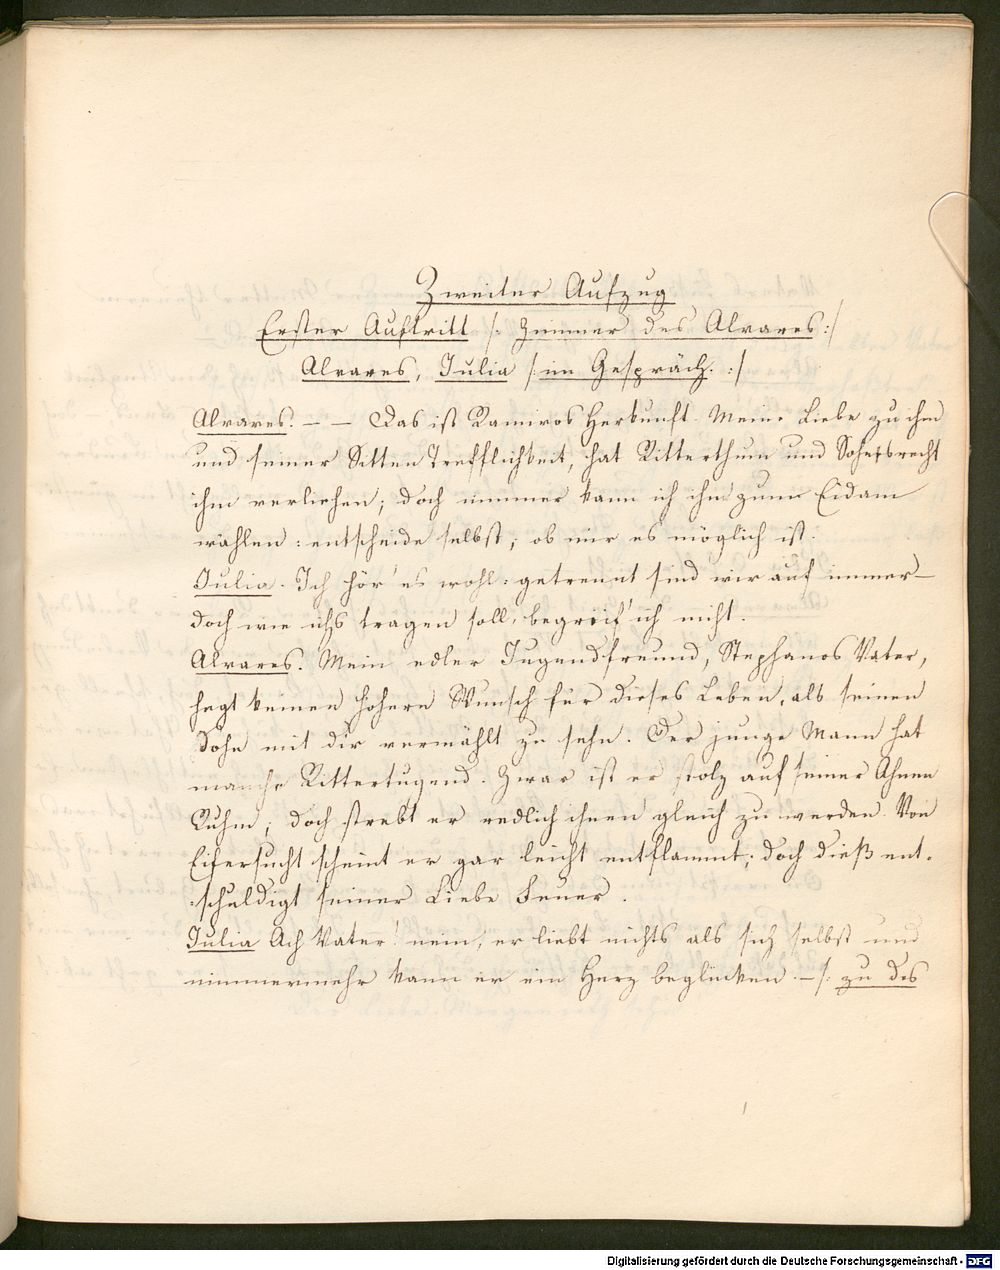 Zweiter Aufzug
Erster Auftritt /: Zimmer des Alvares :/
Alvares, Julia /: im Gespräch. :/
Alvares. – – Das ist Ramiros Herkunft. Meine Liebe zu ihm
und seiner Sitten Trefflichkeit, hat Ritterthum und Sohnsrecht
ihm verliehen; doch nimmer kann ich ihn zum Eidam
wählen: entscheide selbst, ob mir es möglich ist.
Julia. Ich hör' es wohl: getrennt sind wir auf immer –
doch wie ichs tragen soll, begreif' ich nicht.
Alvares. Mein edler Jugendfreund, Stephanos Vater,
hegt keinen höhern Wunsch für dieses Leben, als seinen
Sohn mit dir vermählt zu sehn. Der junge Mann hat
manche Rittertugend. Zwar ist er stolz auf seiner Ahnen
Ruhm; doch strebt er redlich ihnen gleich zu werden. Von
Eifersucht scheint er gar leicht entflammt; doch dieß ent-
schuldigt seiner Liebe Feuer.
Julia Ach Vater! nein, er liebt nichts als sich selbst und
nimmermehr kann er ein Herz beglücken. – /: zu des
Digitalisierung gefördert durch die Deutsche Forschungsgemeinschaft - DFG